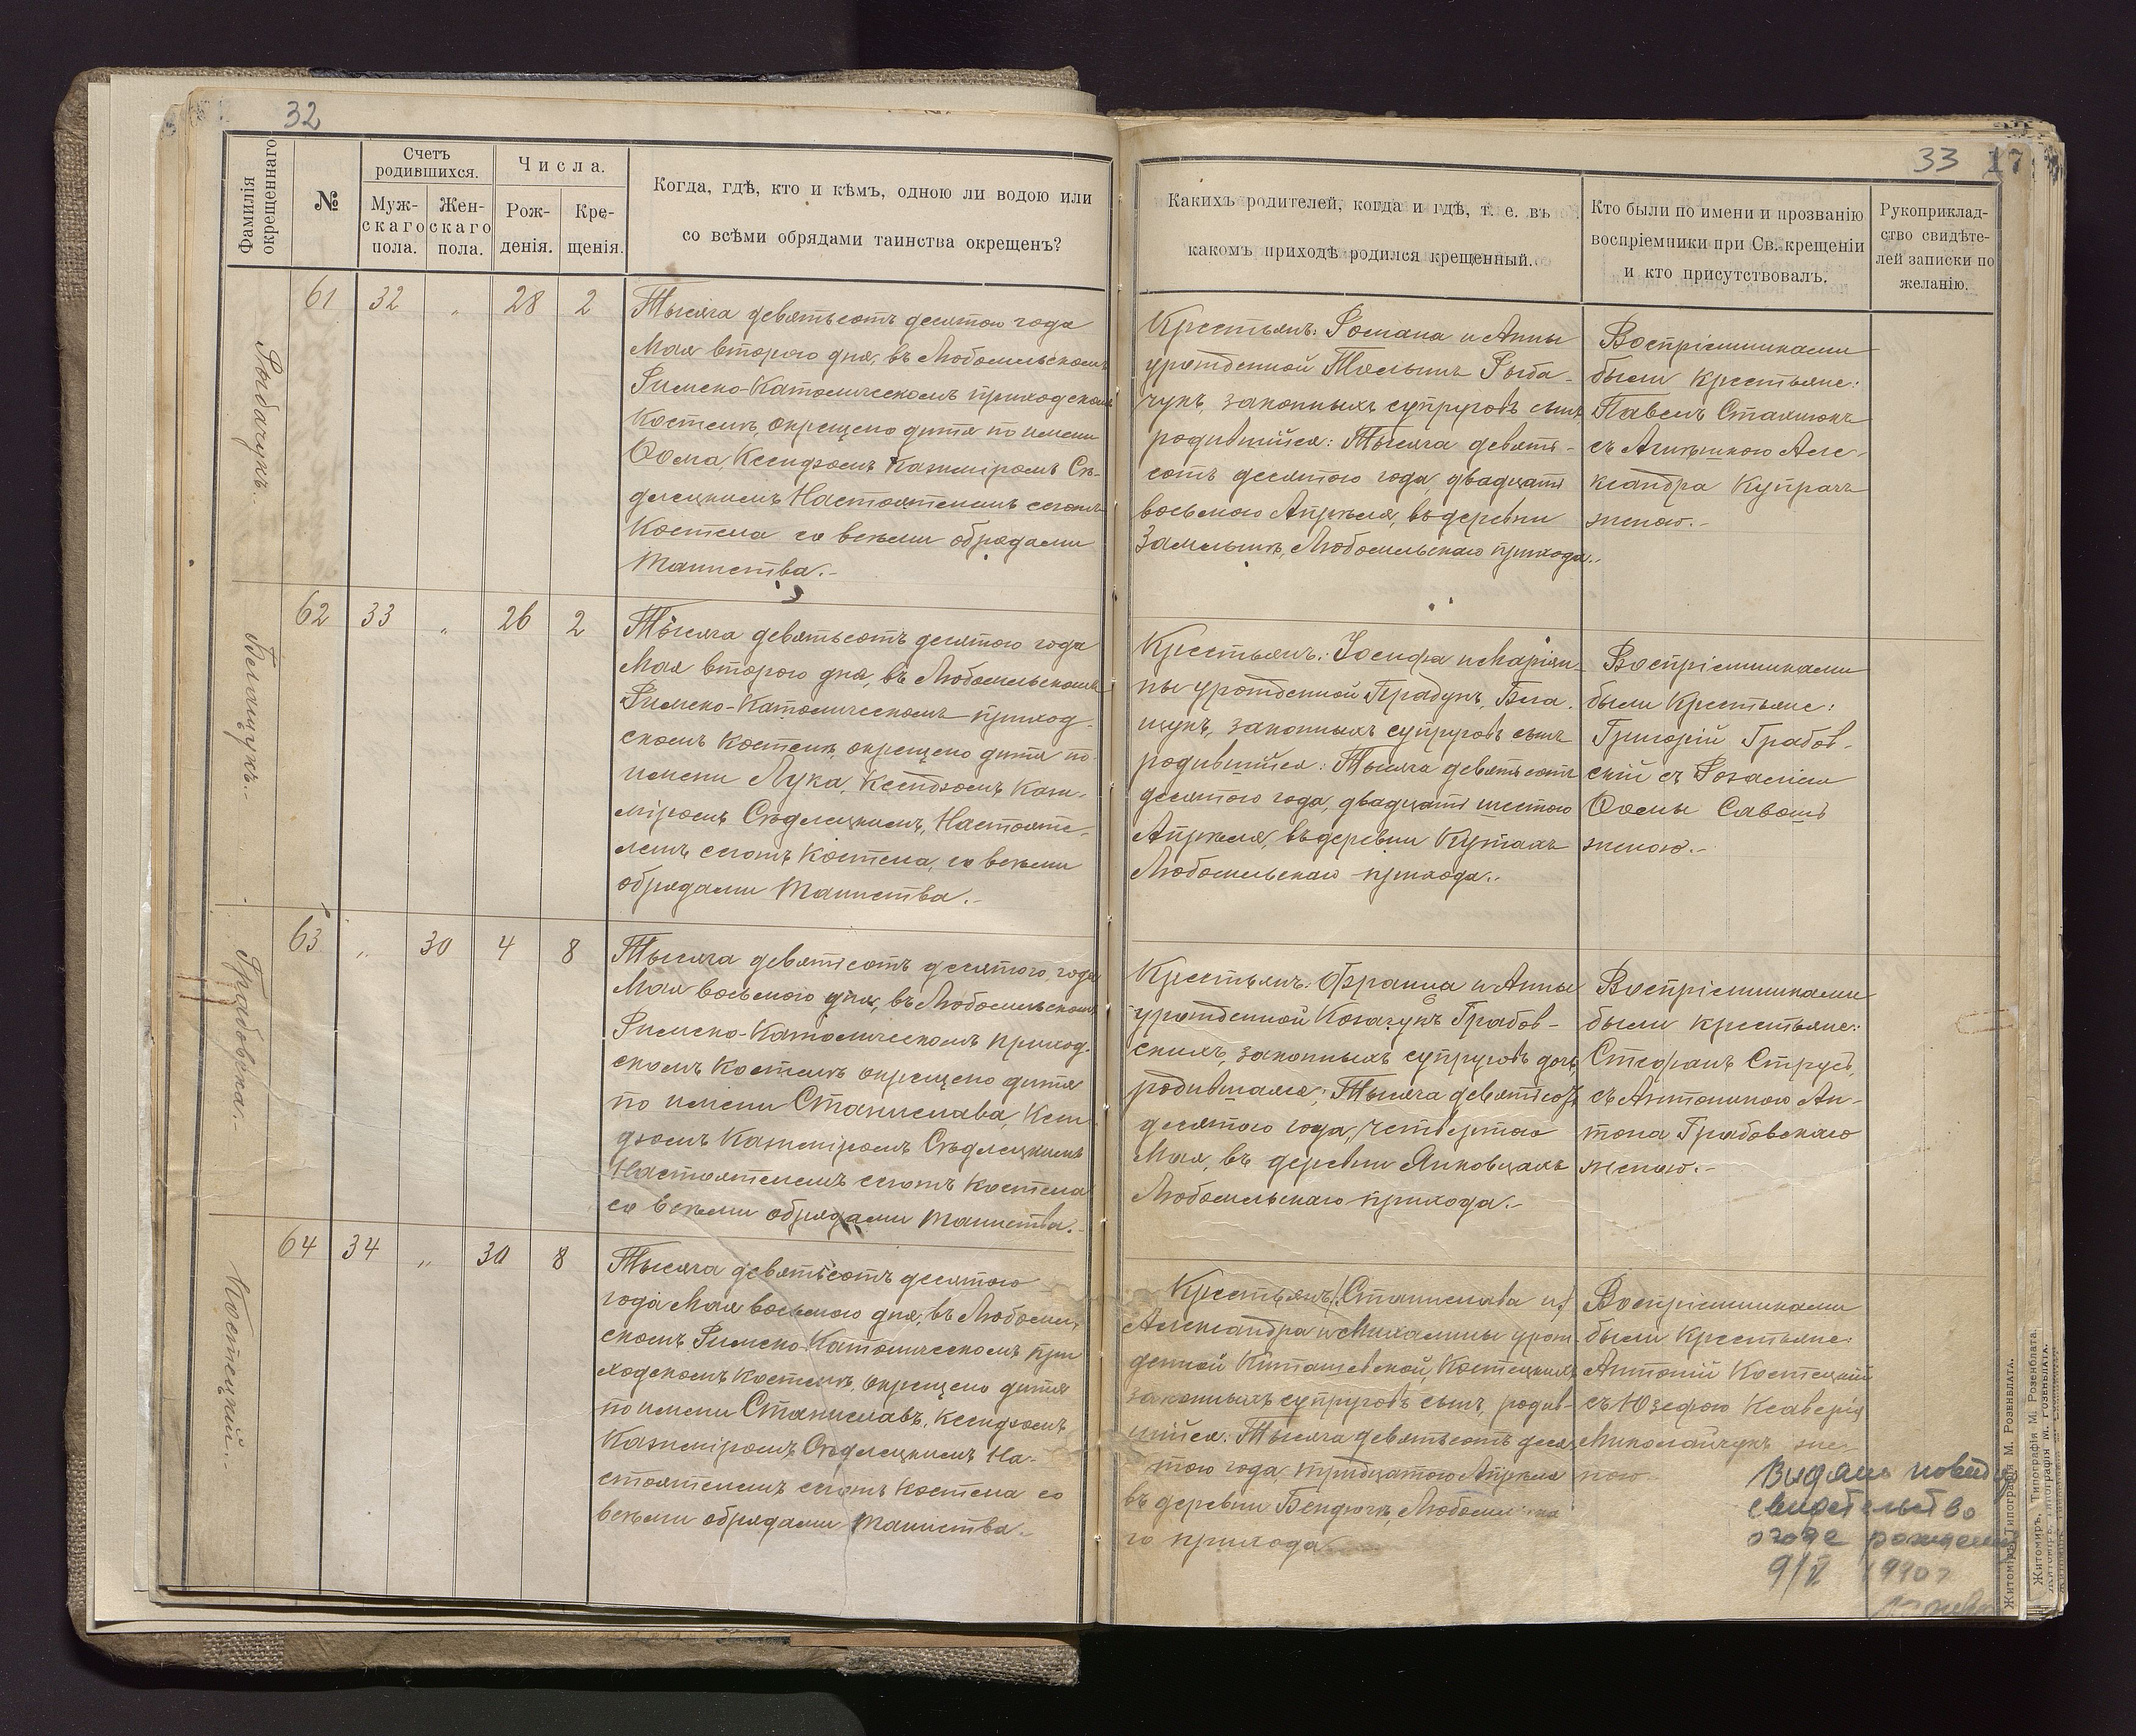 32
Фамилія
окрещеннаго
№
Счетъ
родившихся.
Муж-
скаго
пола.
Жен-
скаго
пола.
Числа.
Рож-
денія.
Кре-
щенія.
Когда, гдѣ, кто и кѣмъ, одною ли водою или
со всѣми обрядами таинства окрещенъ?
Рыбачукъ.
61 32 " 28 2
Тысяча девятьсотъ десятого года
Мая второго дня, въ Любомльскомъ
Римско-Католическомъ приходскомъ
Костелѣ, окрещено дитя по имени
Ѳома, Ксендзомъ Казиміромъ Сѣ-
длецкимъ Настоятелемъ сегожъ
Костела со всѣми обрядами
Таинства.-
Белящукъ.-
62 33 " 26 2
Тысяча девятьсотъ десятого года
Мая второго дня, въ Любомльскомъ
Римско-Католическомъ приход-
скомъ Костелѣ, окрещено дитя по
имени Лука, Ксендзомъ Кази-
міромъ Сѣдлецкимъ, Настояте-
лемъ сегожъ Костела, со всѣми
обрядами Таинства.-
Грабовска.-
63 " 30 4 8
Тысяча девятьсотъ десятого года
Мая восьмого дня, въ Любомльскомъ
Римско-Католическомъ приход-
скомъ Костелѣ окрещено дитя
по имени Станислава, Ксен-
дзомъ Казиміромъ Сѣдлецкимъ
Настоятелемъ сегожъ Костела
со всѣми обрядами таинства.-
Костецкій.-
64 34 " 30 8
Тысяча девятьсотъ десятого
года Мая восьмого дня, въ Любомль-
скомъ Римско-Католическомъ при
ходскомъ Костелѣ, окрещено дитя
по имени Станиславъ, Ксендзомъ
Казиміромъ Сѣдлецкимъ На-
стоятелемъ сегожъ Костела со
всѣми обрядами Таинства.-
33 17
Какихъ родителей, когда и гдѣ, т. е. въ
какомъ приходѣ родился крещенный.
Кто были по имени и прозванію
воспріемники при Св. крещеніи
и кто присутствовалъ.
Рукоприклад-
ство свидѣте-
лей записки по
желанію.
Крестьянъ: Романа и Анны
урожденной Рыба-
чукъ, законныхъ супруговъ сынъ
родившійся: Тысяча девять-
сотъ десятого года, двадцать
восьмого Апрѣля, въ деревни
Замлынѣ, Любомльскаго прихода.-
Воспріемниками
были крестьяне:
Павелъ
съ Агнѣшкою Але-
ксандра Купрачъ
женою.-
Крестьянъ: Іосифа и Маріан-
ны урожденной Прадунъ, Бела-
щукъ, законныхъ супруговъ сынъ
родившійся: Тысяча девятьсотъ
десятого года, двадцать шестого
Апрѣля, въ деревни Кутахъ
Любомльскаго прихода.-
Воспріемниками
были Крестьяне:
Григорій Грабов-
скій съ Розаліею
Ѳомы Савошь
женою.-
Крестьянъ: Франца и Анны
урожденной Козачукъ Грабов-
скихъ, законныхъ супруговъ дочь,
родившаяся: Тысяча девятьсотъ
десятого года, четвертого
Мая, въ деревни Янковцахъ
Любомльскаго прихода.-
Воспріемниками
были крестьяне:
Стефанъ Струсь,
съ Антониною Ан-
тона Грабовскаго
женою.-
Крестьянъ /:Станислава и/
Александра и Михалины урож-
денной Киташевской, Костецкихъ
законныхъ супруговъ сынъ, родив-
шійся: Тысяча девятьсотъ деся-
того года тридцатого Апрѣля
въ деревни Бендюгѣ, Любомльска
го прихода
Воспріемниками
были Крестьяне:
Антоній Костецкій
съ Юзефою Ксаверія
Миколайчукъ же-
ною
Выдано
свидетельство
о годе рождения
9/V
Житомиръ, Типографія М. Розенблата.
Житомиръ, Типографія М. Розенблата.